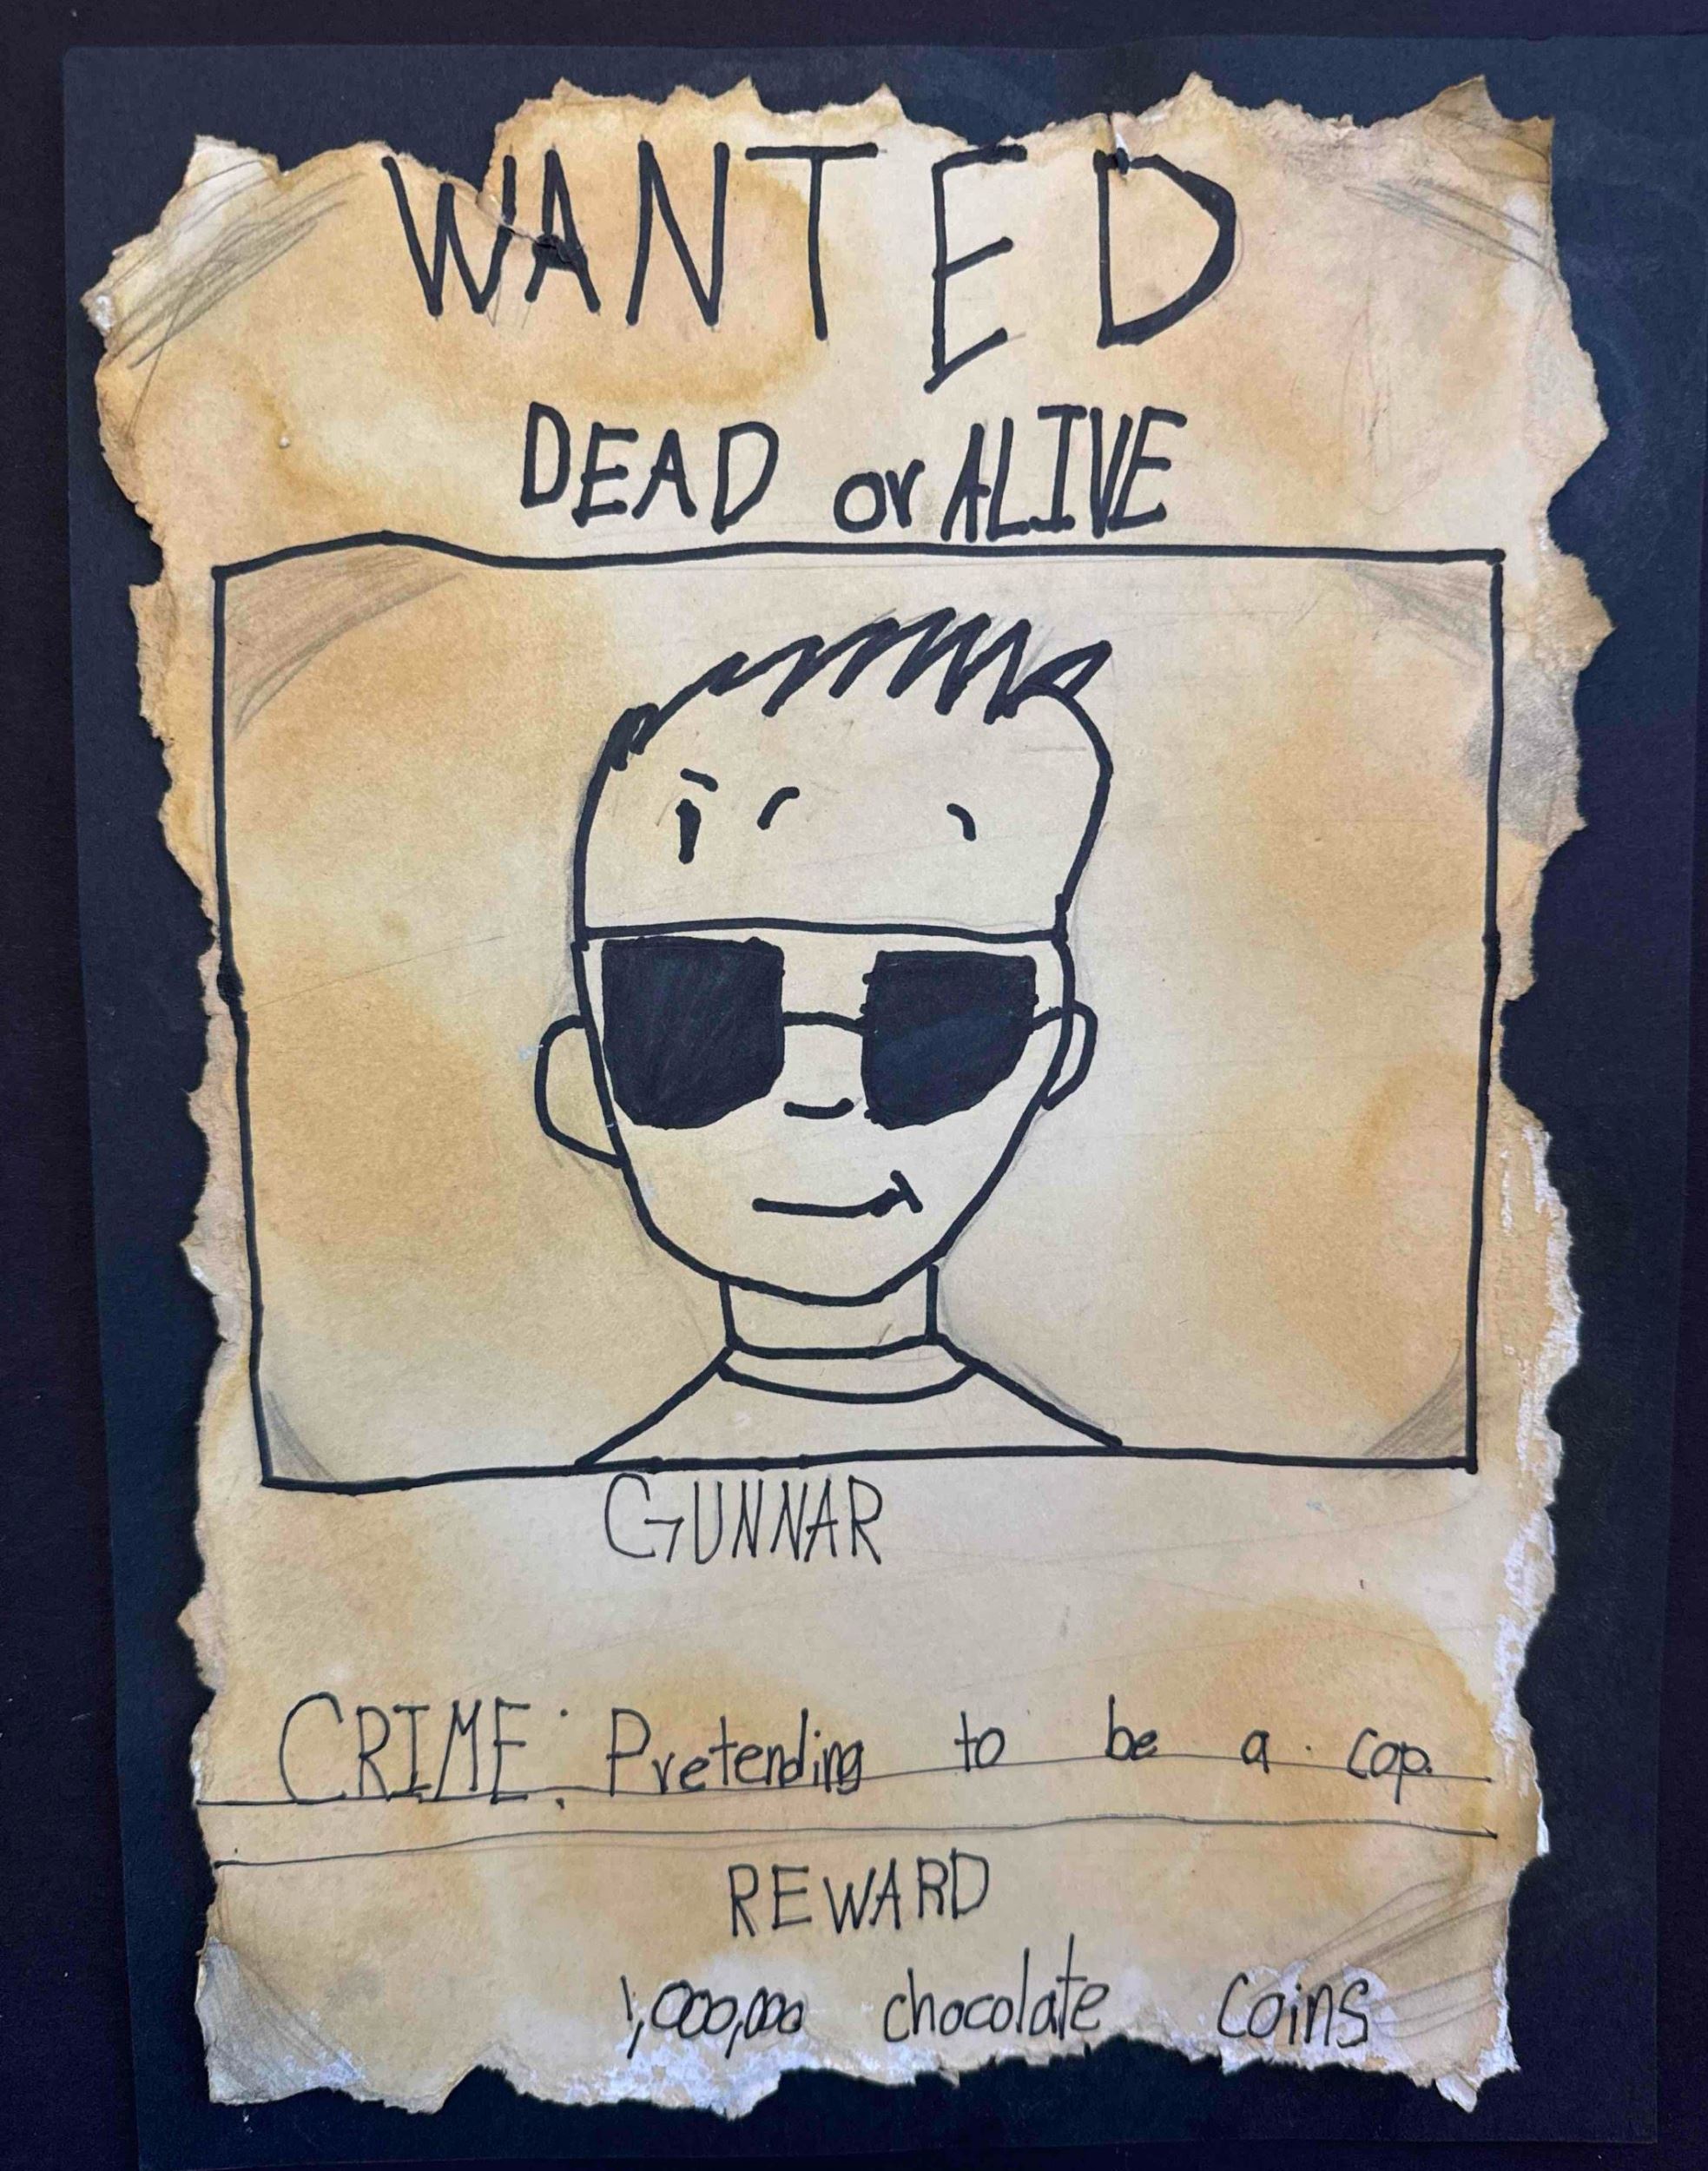 WANTED
DEAD or ALIVE
GUNNAR
CRIME: Pretending to be a cop.
REWARD
1,000,000 chocolate coins